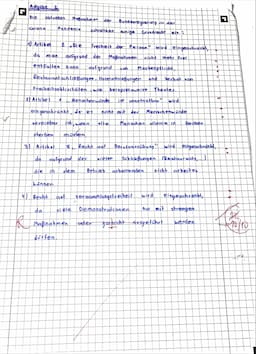 Aufgabe 1
Die aktuellen Maßnahmen der Bundesregierung in der
Corona Pandemie schränken einige Grundrechte ein:
1) Artikel 2 „Die Freiheit der Person" wird eingeschränkt,
da man aufgrund der Maßnahmen nicht mehr frei
entfalten kann aufgrund von Maskenpflicht,
und Verbot von
Freizeitaktivitäten wie beispielsweise Theater.
2) Artikel 1 „Menschenwürde ist unantastbar" wird
eingeschränkt, da es nicht mit der Menschenwürde
vereinbar ist, wenn alte Menschen alleine in
sterben müssen.
3) Artikel "Recht auf Berufsausübung" wird eingeschränkt,
da aufgrund der vielen Schließungen (Restaurants, )
die in dem Betrieb arbeitenden nicht arbeiten
können.
4) Recht auf Versammlungsfreiheit wird eingeschränkt,
da viele Demonstrationen nur mit strengen
Maßnahmen oder gar nicht ausgeführt werden
dürfen.
R